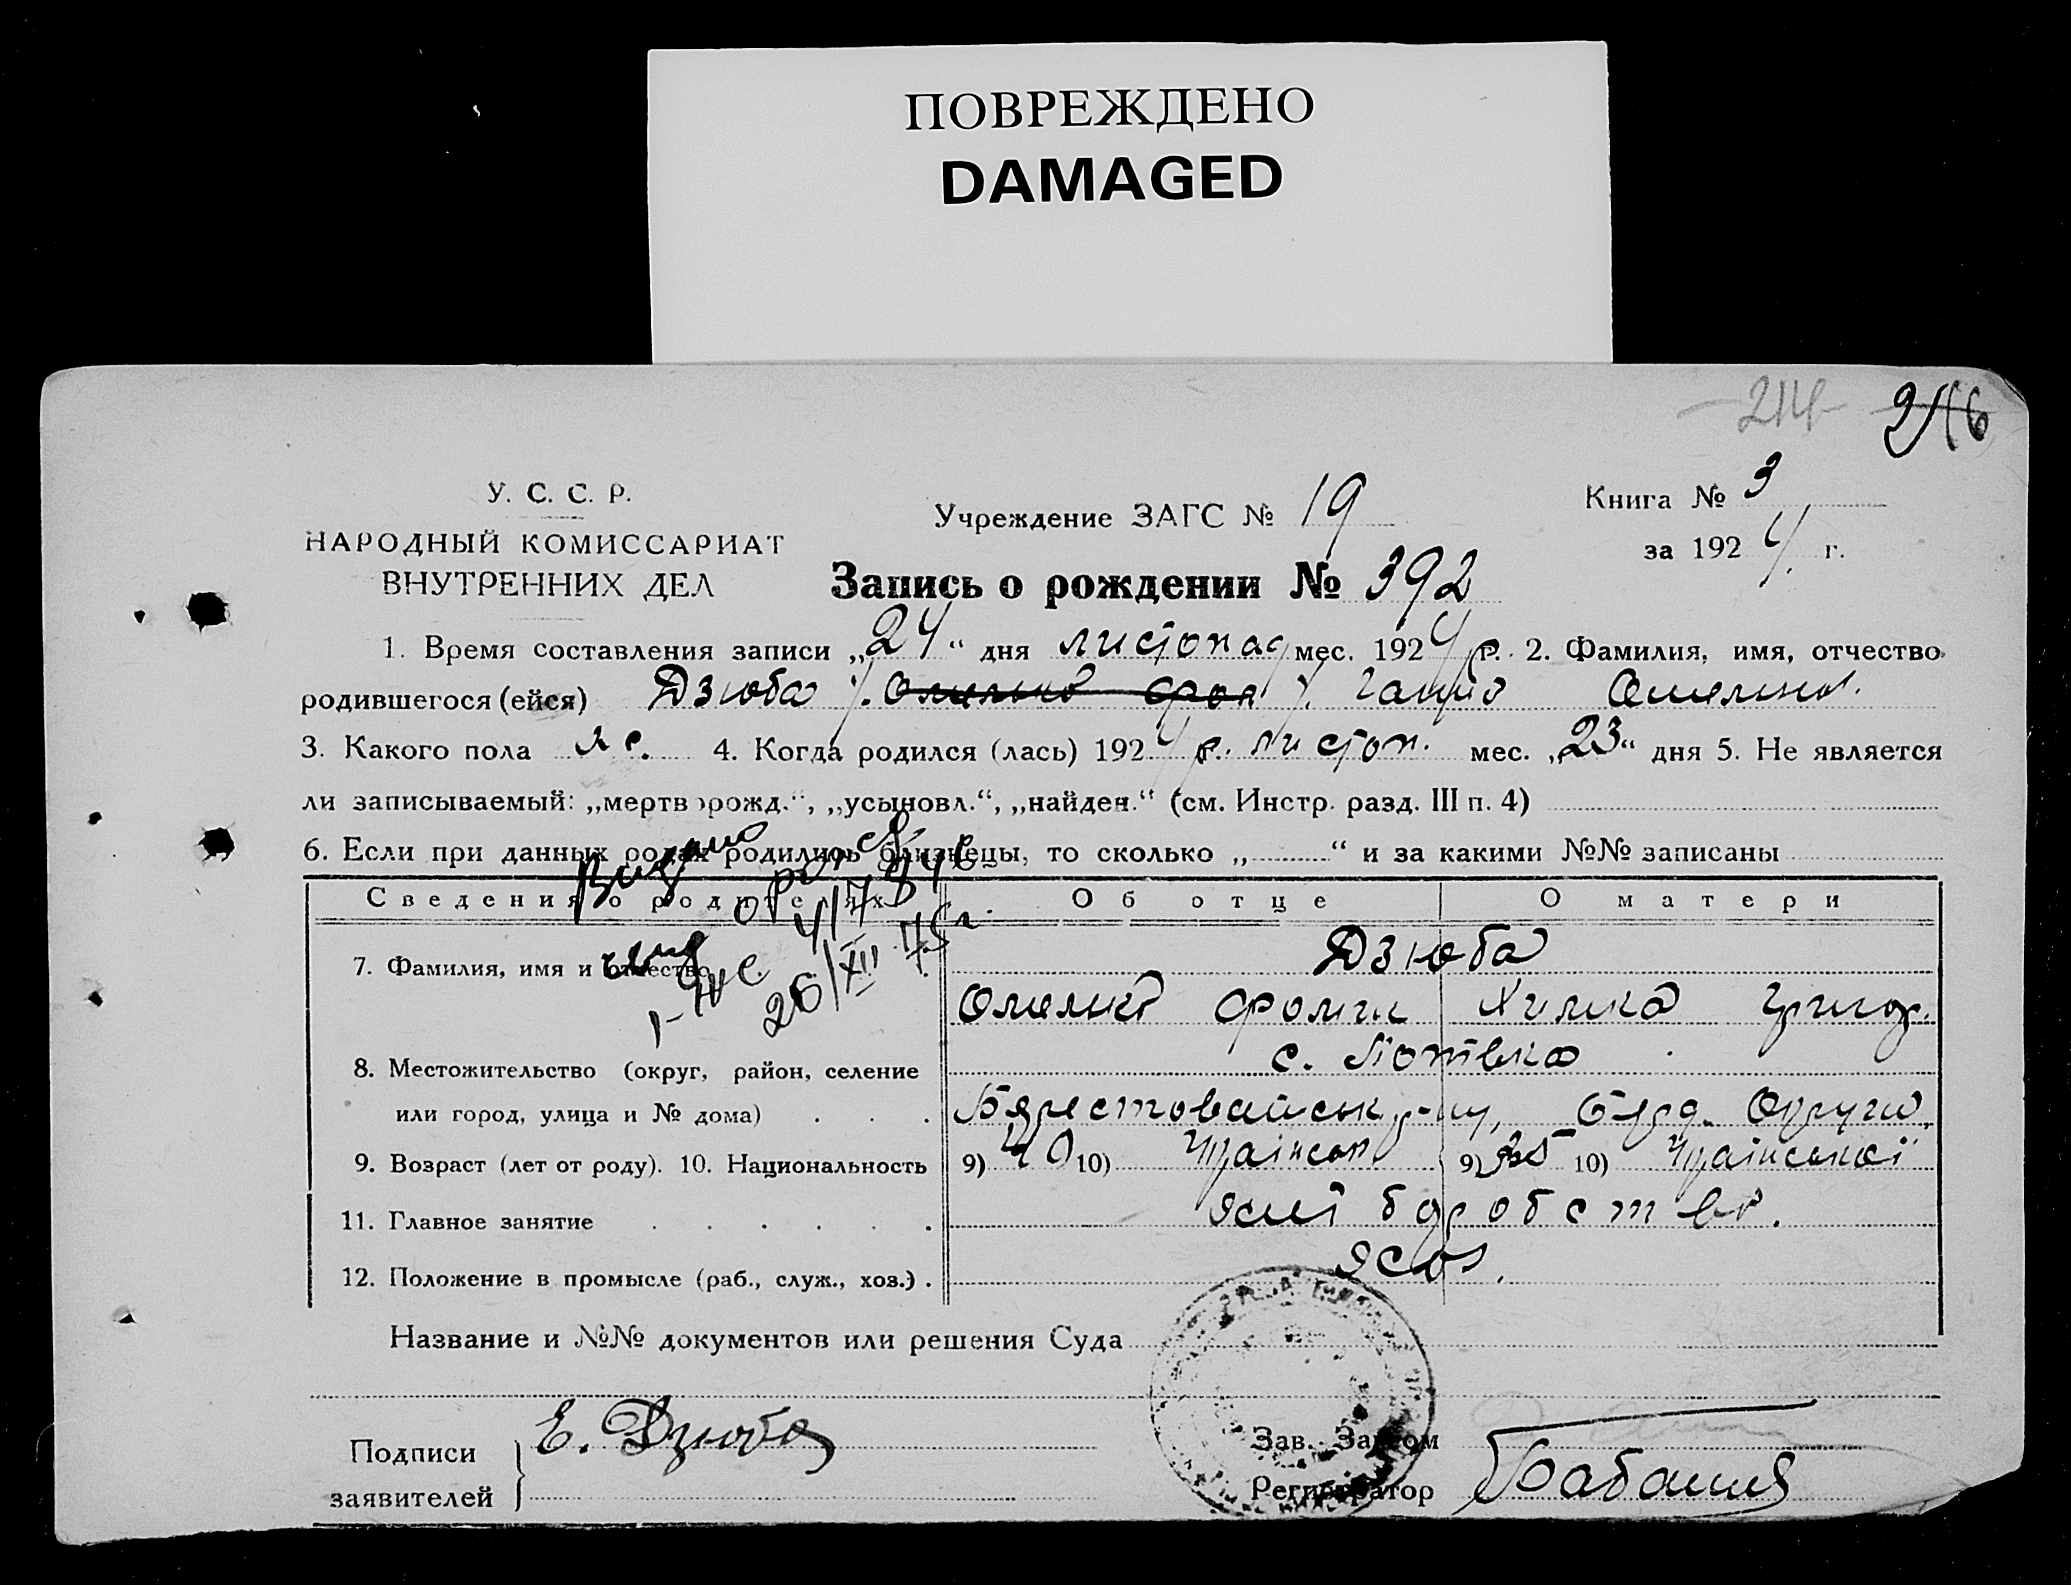 ПОВРЕЖДЕНО
DAMAGED
214 216
У. С. С. Р.
НАРОДНЫЙ КОМИССАРИАТ
ВНУТРЕННИХ ДЕЛ
Учреждение ЗАГС № 19
Книга № 3
за 1924 г.
Запись о рождении № 392
1. Время составления записи „24“ дня листопад мес. 1924 р. 2. Фамилия, имя, отчество
родившегося (ейся) Дзюба
3. Какого пола 4. Когда родился (лась) 1924 р. листоп. мес. „23“ дня 5. Не является
ли записываемый: „мертворожд.“, „усыновл.“, „найден.“ (см. Инстр. разд. III п. 4)
6. Если при данных родах родились близнецы, то сколько „ “ и за какими №№ записаны
Видано
26/XII 75г.
Сведения о родителях Об отце О матери
7. Фамилия, имя и отчество Дзюба
Омелько Фомич Химка Григор.
8. Местожительство (округ, район, селение с.
или город, улица и № дома) Округи
9. Возраст (лет от роду). 10. Национальность 9) 40 10) Українськ 9) 35 10) Української
11. Главное занятие
12. Положение в промысле (раб., служ., хоз.)
Название и №№ документов или решения Суда
Подписи заявителей Е. Дзюба
Зав. Загсом
Регистратор